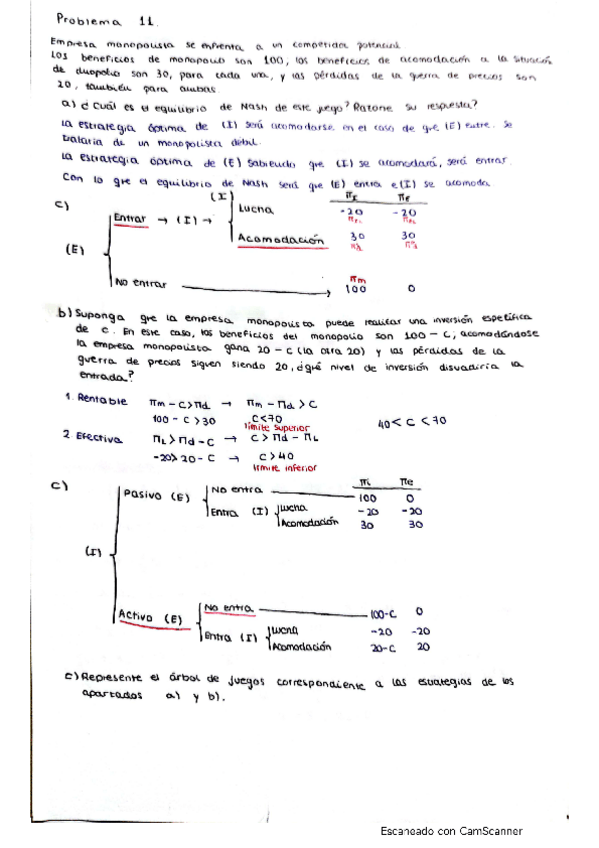 Problema 11.
Empresa monopolista se enfrenta a un competidor potencial
Los beneficios de monopolio son 100, los beneficios de acomodación a la situación
de duopolio son 30, para cada una, y las pérdidas de la guerra de precios son
20, también para ambas
a) ¿Cuál es el equilibrio de Nash de este juego? Razone su respuesta?
La estrategia óptima de (I) será acomodarse en el caso de que (E) entre. Se
trataría de un monopolista débil.
La estrategia óptima de (E) sabiendo que (I) se acomodará, será entrar.
Con lo que el equilibrio de Nash será que (E) entra e (I) se acomoda
c) (I) πI πE
Entrar → (I) → Lucha -20 -20
Acomodación 30 30
(E)
πm
No entrar → 100 0
b) Suponga que la empresa monopolista puede realizar una inversión específica
de c. En este caso, los beneficios del monopolio son 100 - C; acomodándose
la empresa monopolista gana 20 - c (la otra 20) y las pérdidas de la
guerra de precios siguen siendo 20, ¿qué nivel de inversión disuadiría la
entrada?
1. Rentable πm - c > πd → πm - πd > c
100 - c > 30 c < 70 40 < c < 70
límite superior
2. Efectiva πL > πd - c → c > πd - πL
-20 > 20 - c → c > 40
límite inferior
c) πi πe
Pasivo (E) No entra 100 0
Entra (I) Lucha -20 -20
Acomodación 30 30
(I)
Activo (E) No entra 100-C 0
Entra (I) Lucha -20 -20
Acomodación 20-C 20
c) Represente el árbol de juegos correspondiente a las estrategias de los
apartados a) y b).
Escaneado con CamScanner